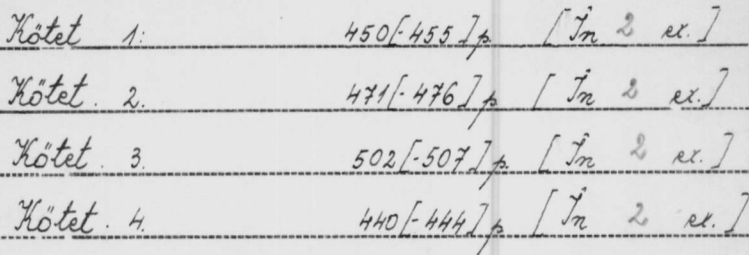 Kötet 1: 450[-455] p. [În 2 ex.]
Kötet. 2. 471[-476] p. [În 2 ex.]
Kötet. 3. 502[-507] p. [În 2 ex.]
Kötet. 4. 440[-444] p. [În 2 ex.]